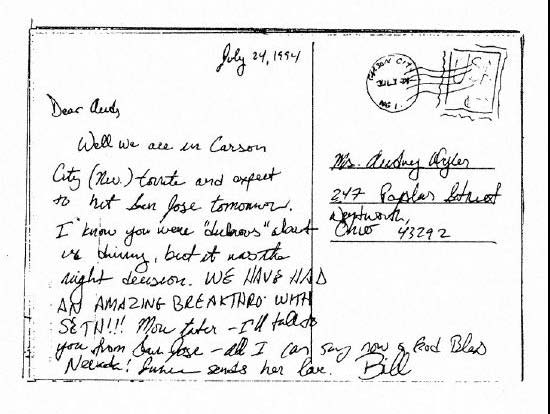 July 24, 1994
Dear Auds,
Well we are in Carson
City (Nev.) tonite and expect
to hit San Jose tomorrow.
I know you were "dubious" about
us driving, but it was the
right decision. WE HAVE HAD
AN AMAZING BREAKTHRO' WITH
SETH!!! More later - I'll talk to
you from San Jose - all I can say now is God Bless
Nevada! sends her love. Bill
CARSON CITY
JUL
Ms. Audrey Wyler
247 Poplar Street
Wentworth,
Ohio 43292